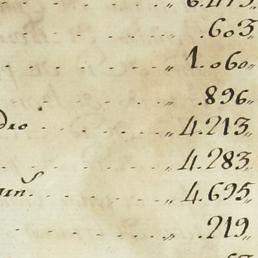 6.473„
.603„
„ 1.060„
.896„
dro „ 4.213„
„ 4.283„
„ 4.695„
„ .219„